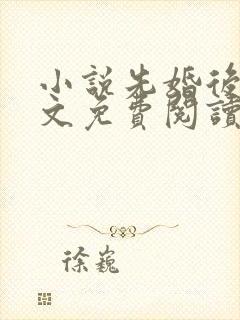 小說先婚後
文免費閱讀
徐巍